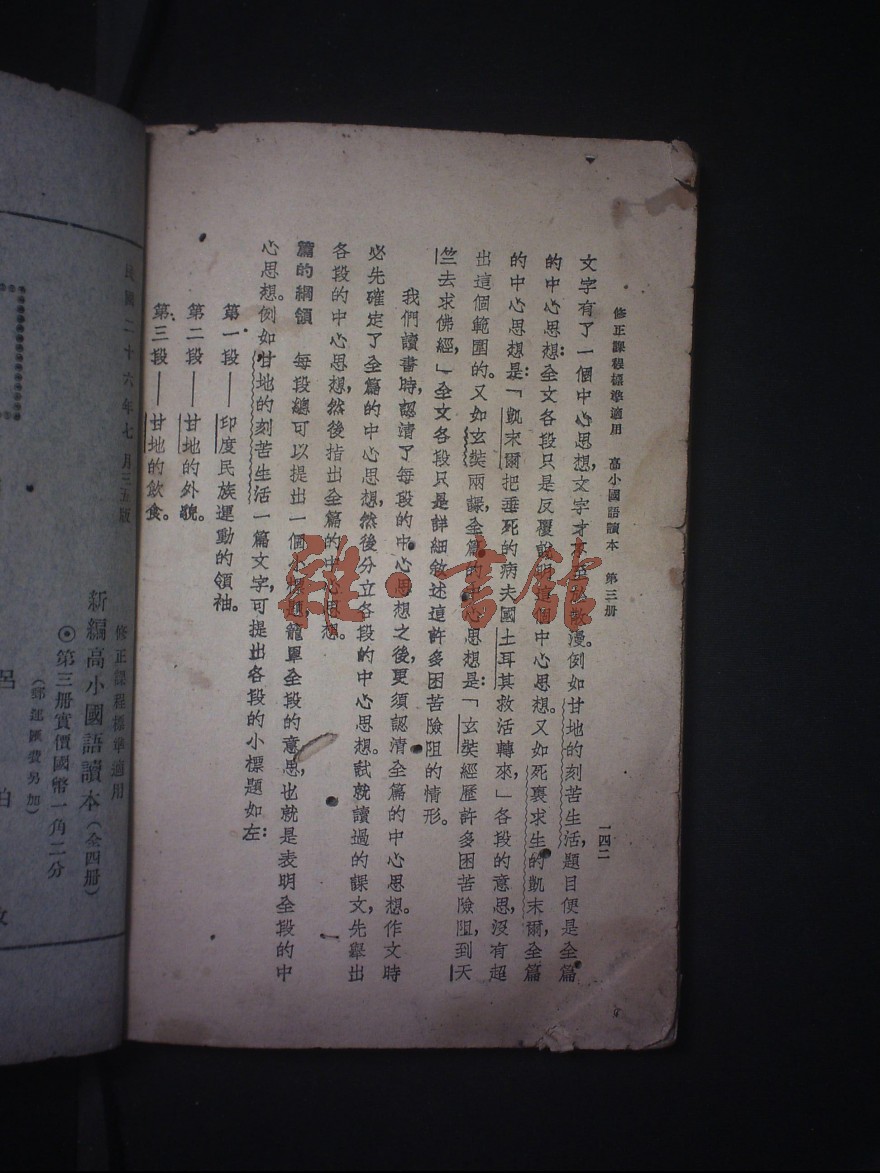 修正課程標準適用　高小國語讀本　第三册
一四二
文字有了一個中心思想,文字才不至於散漫。例如甘地的刻苦生活,題目便是全篇
的中心思想:全文各段只是反覆說明這個中心思想。又如死裏求生的凱末爾,全篇
的中心思想是:「凱末爾把垂死的病夫國土耳其救活轉來,」各段的意思,沒有超
出這個範圍的。又如玄奘兩課,全篇的中心思想是:「玄奘經歷許多困苦險阻,到天
竺去求佛經,」全文各段只是詳細敘述這許多困苦險阻的情形。
我們讀書時,認清了每段的中心思想之後,更須認清全篇的中心思想。作文時
必先確定了全篇的中心思想,然後分立各段的中心思想。試就讀過的課文,先舉出
各段的中心思想,然後指出全篇的中心思想。
篇的綱領　每段總可以提出一個小標題,籠罩全段的意思,也就是表明全段的中
心思想。例如甘地的刻苦生活一篇文字,可提出各段的小標題如左:
第一段——印度民族運動的領袖。
第二段——甘地的外貌。
第三段——甘地的飲食。
民國二十六年七月三五版
修正課程標準適用
新編高小國語讀本(全四册)
◎第三册實價國幣一角二分
(郵運匯費另加)
呂伯攸
雜·書館